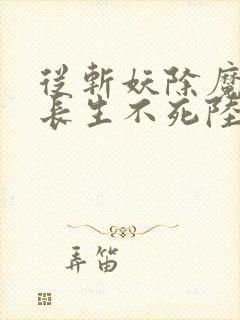 從斬妖除魔
長生不死陸
弄笛